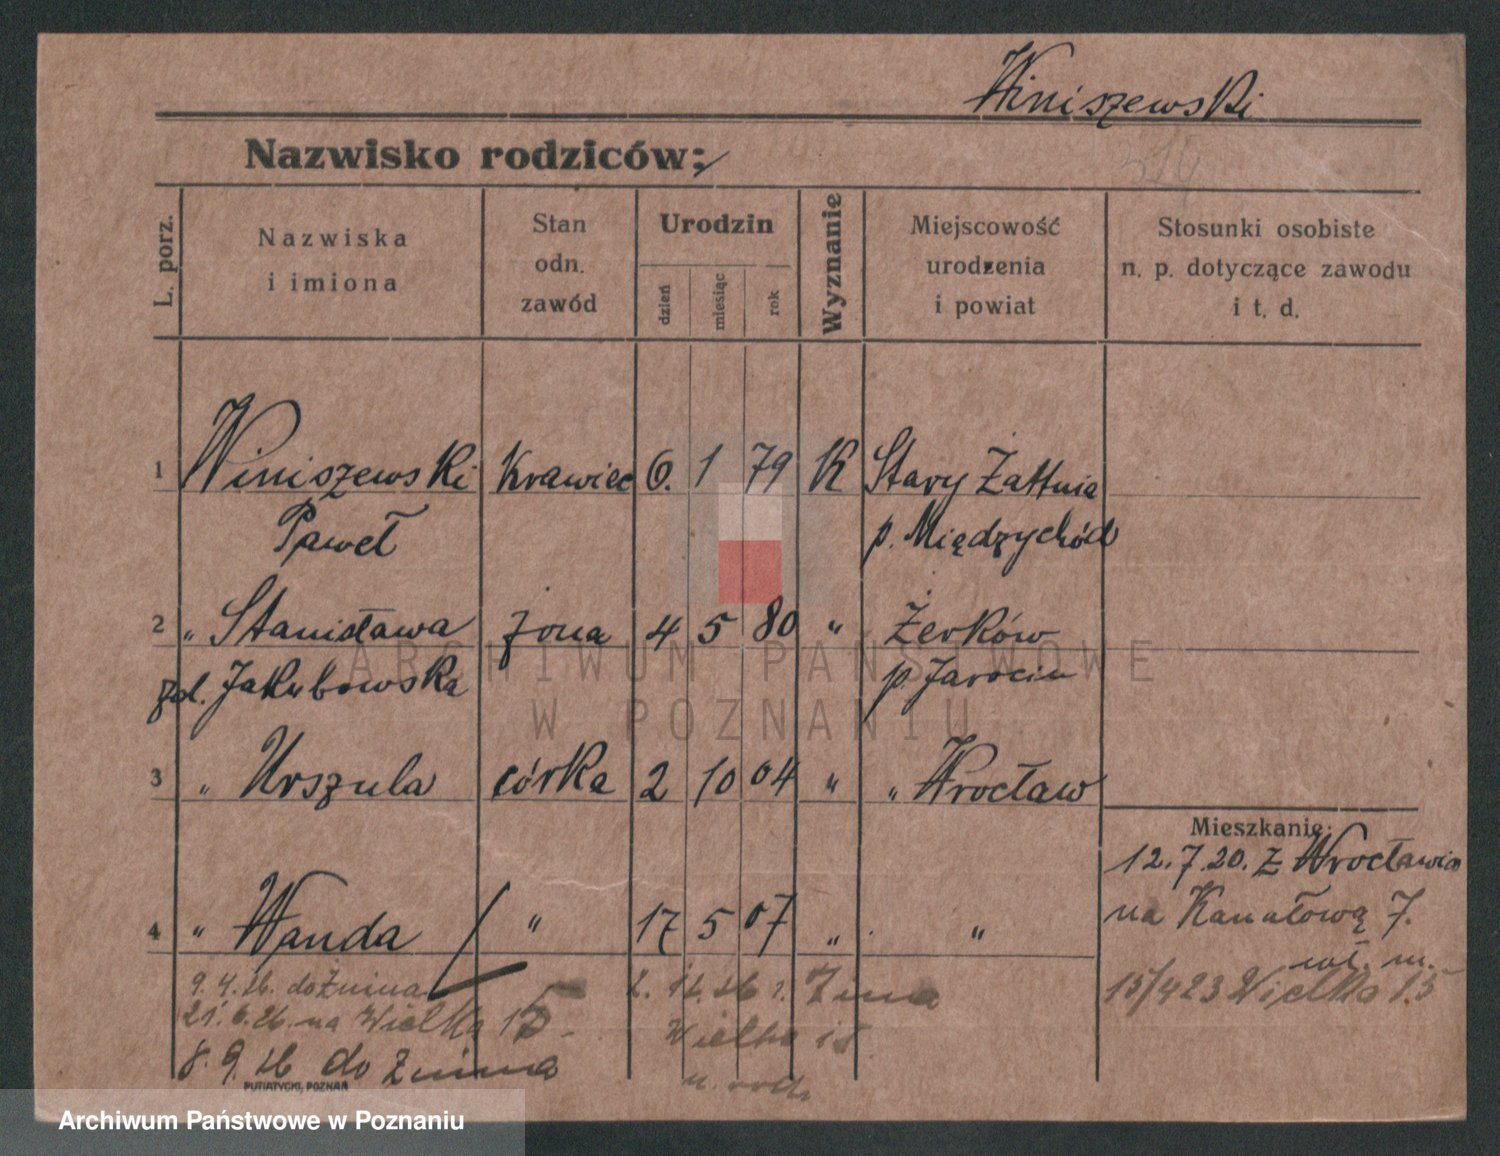 Winiszewski
Nazwisko rodziców:
L. porz.
Nazwiska i imiona
Stan odn. zawód
Urodzin
dzień
miesiąc
rok
Wyznanie
Miejscowość urodzenia i powiat
Stosunki osobiste n. p. dotyczące zawodu i t. d.
1 Winiszewski Krawiec 6. 1 79 K Stary Zattnia
Paweł p. Międzychód
2 " Stanisława żona 4 5 80 " Żerków
zd. Jakubowska p. Jarocin
3 " Urszula córka 2 10 04 " " Wrocław
4 " Wanda " 17 5 07 " "
Mieszkanie:
12.7.20. z Wrocławia
na Kanałową 7.
15/423 Wielka 15
9.4.26. do Żnina
21.6.26. na Wielka 15
8.9.26 do Żnina
Żnina
Wielka 18
PUTIATYCKI, POZNAŃ
ARCHIWUM PAŃSTWOWE
W POZNANIU
Archiwum Państwowe w Poznaniu